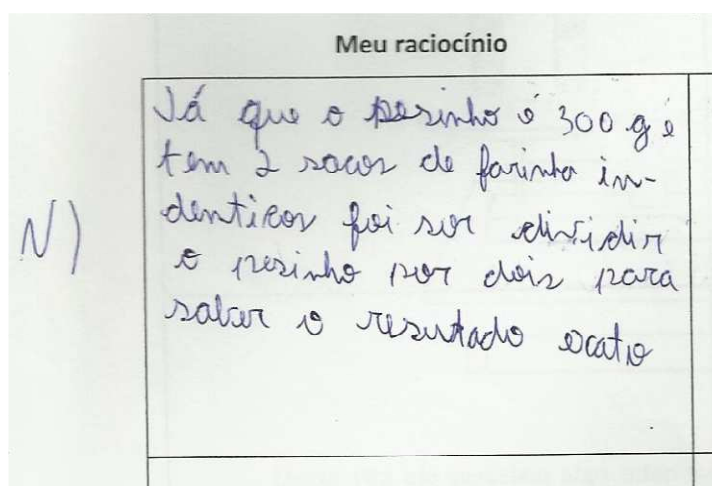 Meu raciocínio
Já que o pesinho é 300 g é
tem 2 sacos de farinha in-
denticos foi sor dividir
o pesinho por dois para
saber o resutado ocato
N)